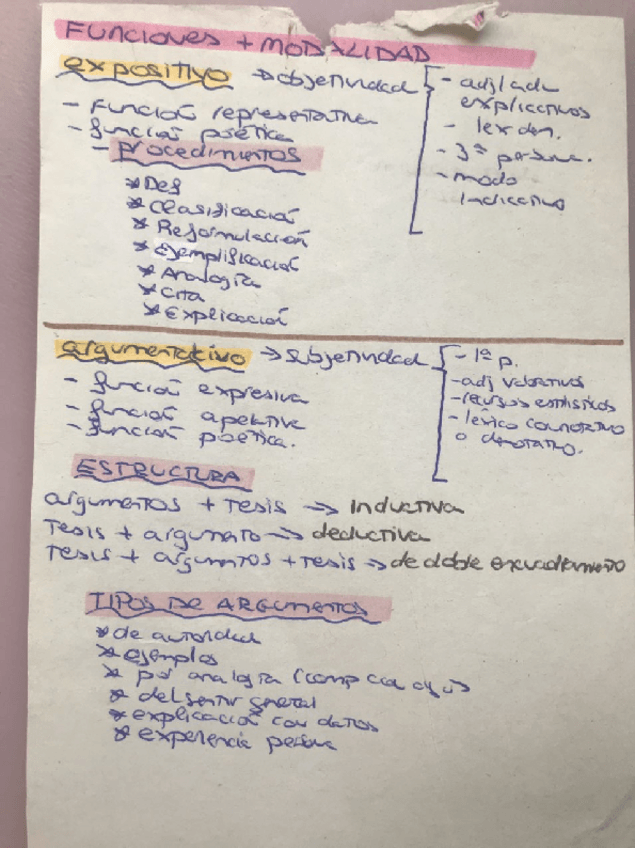 FUNCIONES + MODALIDAD
expositivo → objetividad
- adj/adv
explicativos
- lex den.
- 3ª persona.
- modo
Indicativo
- Función representativa
- función poética
- PROCEDIMIENTOS
* Def
* Clasificación
* Reformulación
* Ejemplificación
* Analogía
* Cita
* Explicación
argumentativo → subjetividad
- 1ª p.
- adj valorativos
- recursos estilísticos
- léxico connotativo
o denotativo.
- función expresiva
- función apelativa
- función poética.
ESTRUCTURA
argumentos + Tesis → Inductiva
Tesis + argumento → deductiva
Tesis + argumentos + Tesis → de doble encuadramiento
TIPOS DE ARGUMENTOS
* de autoridad
* ejemplos
* por analogía (comp con
* del sentir general
* explicación con datos
* experiencia personal